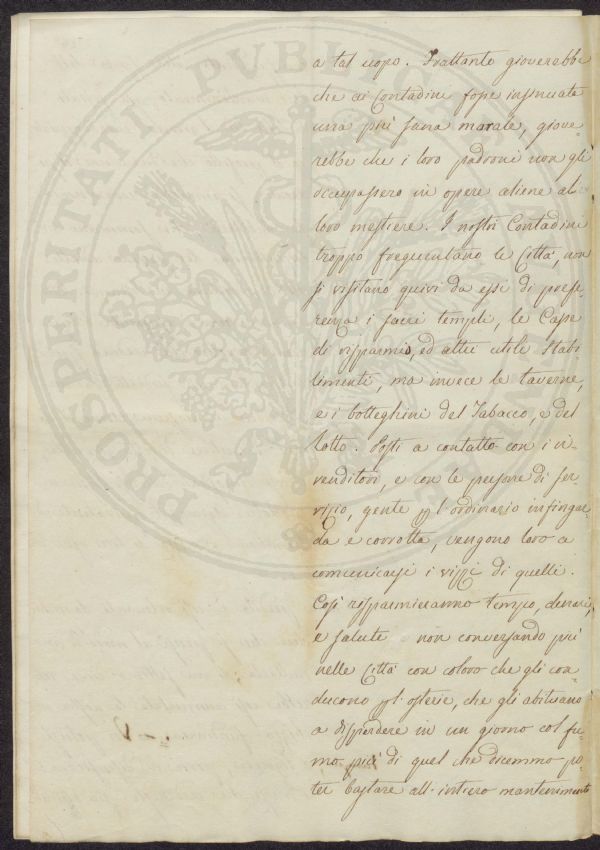 a tal uopo. Frattanto gioverebbe
che ai Contadini fosse insinuata
una più sana morale, giove-
rebbe che i loro padroni non gli
occupassero in opere aliene al
loro mestiere. I nostri Contadini
troppo frequentano le Città, non
si visitano quivi da essi di prefe-
renza i sacri templi, le Casse
di risparmio, ed altri utili Stabi-
limenti, ma invece le taverne,
e i botteghini del Tabacco, e del
Lotto. Posti a contatto con i ri-
venditori, e con le persone di ser-
vizio, gente pl ordinario infingar-
da e corrotta, vengono loro a
comunicarsi i vizzi di quelli.
Così risparmieranno tempo, denari,
e salute non conversando più
nelle Città con coloro che gli con-
ducono pl osterie, che gli abituano
a disperdere in un giorno col fu-
mo più di quel che dicemmo po-
ter bastare all'intiero mantenimento
PROSPERITATI PUBLICAE